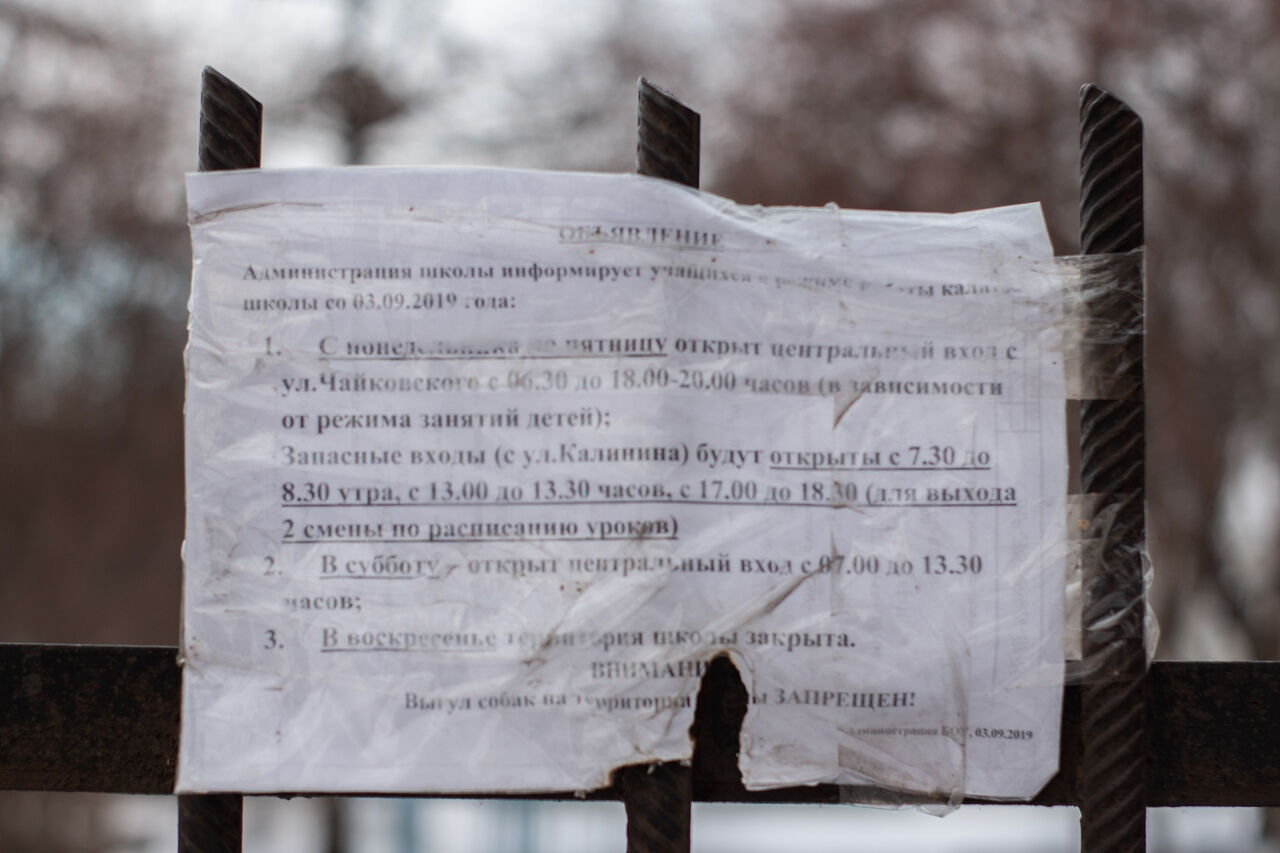 ОБЪЯВЛЕНИЕ
Администрация школы информирует учащихся о режиме работы
школы со 03.09.2019 года:
1. С понедельника по пятницу открыт центральный вход с
ул.Чайковского с 06.30 до 18.00-20.00 часов (в зависимости
от режима занятий детей);
Запасные входы (с ул.Калинина) будут открыты с 7.30 до
8.30 утра, с 13.00 до 13.30 часов, с 17.00 до 18.30 (для выхода
2 смены по расписанию уроков)
2. В субботу – открыт центральный вход с 07.00 до 13.30
часов;
3. В воскресенье территория школы закрыта.
ВНИМАНИ
Выгул собак на территории ы ЗАПРЕЩЕН!
Администрация 03.09.2019